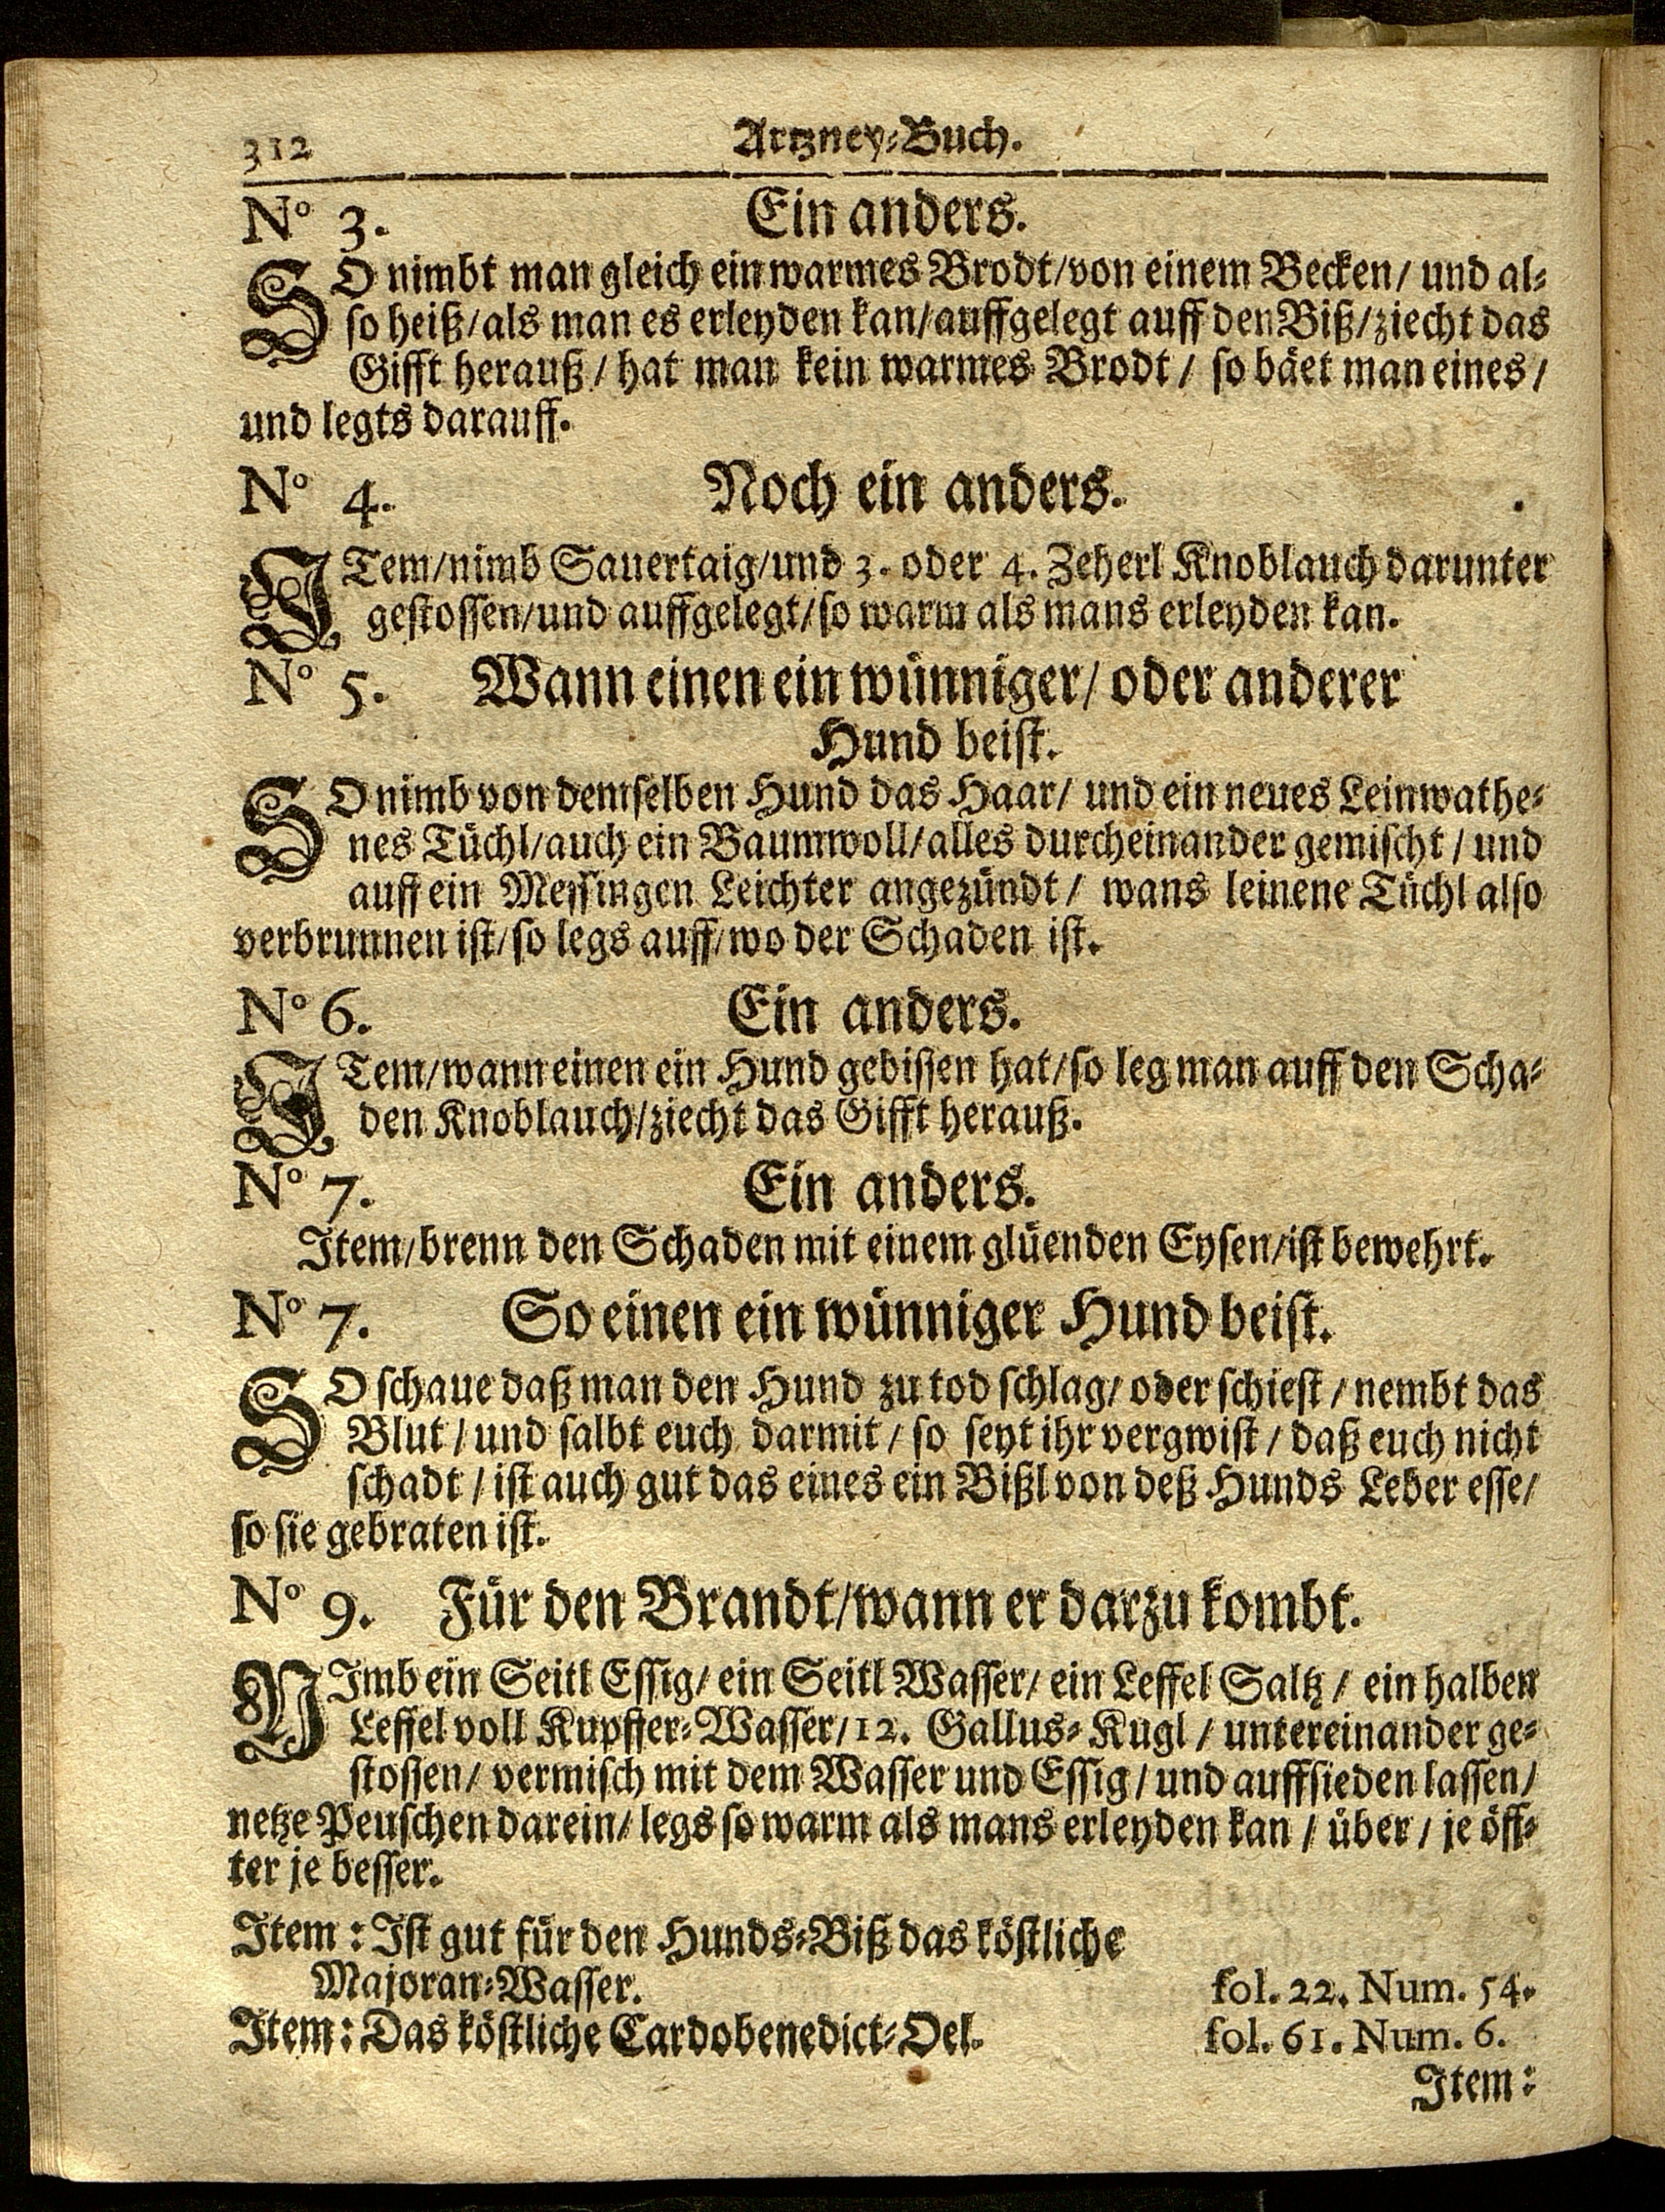 312 Artzney-Buch.
Nº 3. Ein anders.
SO nimbt man gleich ein warmes Brodt/von einem Becken/ und al-
so heiß/als man es erleyden kan/auffgelegt auff den Biß/ziecht das
Gifft herauß/ hat man kein warmes Brodt/ so bäet man eines/
und legts darauff.
Nº 4. Noch ein anders.
ITem/nimb Sauertaig/und 3. oder 4. Zeherl Knoblauch darunter
gestossen/und auffgelegt/so warm als mans erleyden kan.
Nº 5. Wann einen ein wünniger/ oder anderer
Hund beist.
SO nimb von demselben Hund das Haar/ und ein neues Leinwathe-
nes Tüchl/auch ein Baumwoll/alles durcheinander gemischt/ und
auff ein Messingen Leichter angezündt/ wans leinene Tüchl also
verbrunnen ist/so legs auff/wo der Schaden ist.
Nº 6. Ein anders.
ITem/wann einen ein Hund gebissen hat/so leg man auff den Scha-
den Knoblauch/ziecht das Gifft herauß.
Nº 7. Ein anders.
Item/brenn den Schaden mit einem glüenden Eysen/ist bewehrt.
Nº 7. So einen ein wünniger Hund beist.
SO schaue daß man den Hund zu tod schlag/ oder schiest/ nembt das
Blut/ und salbt euch darmit/ so seyt ihr vergwist/ daß euch nicht
schadt/ ist auch gut das eines ein Bißl von deß Hunds Leber esse/
so sie gebraten ist.
Nº 9. Für den Brandt/wann er darzu kombt.
NImb ein Seitl Essig/ ein Seitl Wasser/ ein Leffel Saltz/ ein halben
Leffel voll Kupffer-Wasser/12. Gallus-Kugl/ untereinander ge-
stossen/ vermisch mit dem Wasser und Essig/ und auffsieden lassen/
netze Peuschen darein/ legs so warm als mans erleyden kan/ über/ je öff-
ter je besser.
Item: Ist gut für den Hunds-Biß das köstliche
Majoran-Wasser. fol. 22. Num. 54.
Item: Das köstliche Cardobenedict-Oel. fol. 61. Num. 6.
Item: